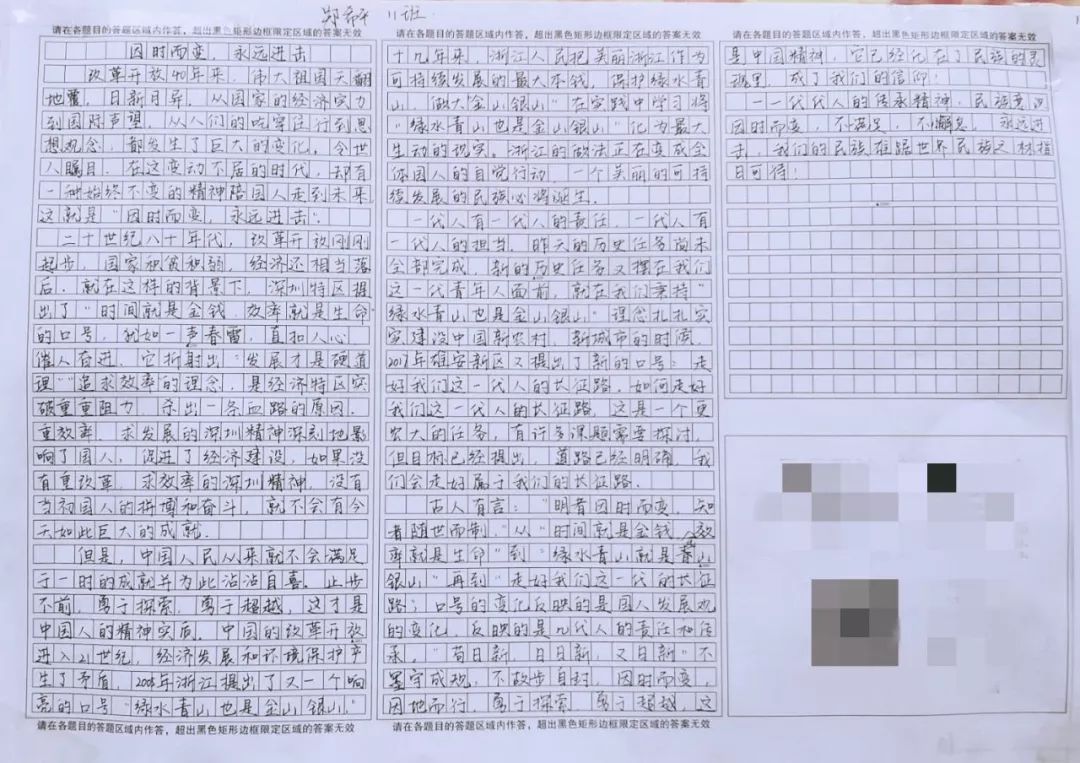 郑希平 11班
请在各题目的答题区域内作答，超出黑色矩形边框限定区域的答案无效
因时而变，永远进击
改革开放40年来，伟大祖国天翻
地覆，日新月异，从国家的经济实力
到国际声望，从人们的吃穿住行到思
想观念，都发生了巨大的变化，令世
人瞩目。在这变动不居的时代，却有
一种始终不变的精神陪国人走到未来
这就是“因时而变，永远进击”。
二十世纪八十年代，改革开放刚刚
起步，国家积贫积弱，经济还相当落
后，就在这样的背景下，深圳特区提
出了“时间就是金钱，效率就是生命
的口号，犹如一声春雷，直扣人心，
催人奋进，它折射出“发展才是硬道
理”“追求效率的理念，是经济特区突
破重重阻力，杀出一条血路的原因。
重效率、求发展的深圳精神深刻地影
响了国人，促进了经济建设，如果没
有重改革、求效率的深圳精神，没有
当初国人的拼博和奋斗，就不会有今
天如此巨大的成就。
但是，中国人民从来就不会满足
于一时的成就并为此沾沾自喜，止步
不前，勇于探索，勇于超越，这才是
中国人的精神实质。中国的改革开放
进入21世纪，经济发展和环境保护产
生了矛盾，2005年浙江提出了又一个响
亮的口号“绿水青山也是金山银山”
请在各题目的答题区域内作答，超出黑色矩形边框限定区域的答案无效
请在各题目的答题区域内作答，超出黑色矩形边框限定区域的答案无效
十九年来，浙江人民把美丽浙江作为
可持续发展的最大本钱，保护绿水青
山，做大“金山银山”在实践中学习将
“绿水青山也是金山银山”化为最大
生动的现实。浙江的做法正在变成全
体国人的自觉行动，一个美丽的可持
续发展的民族必将诞生。
一代人有一代人的责任，一代人有
一代人的担当，昨天的历史任务尚未
全部完成，新的历史任务又摆在我们
这一代青年人面前，就在我们秉持“
绿水青山也是金山银山”理念扎扎实
实建设中国新农村，新城市的时候，
2017年雄安新区又提出了新的口号：走
好我们这一代人的长征路，如何走好
我们这一代人的长征路，这是一个更
宏大的任务，有许多课题需要探讨，
但目标已经提出，道路已经明确，我
们会走好属于我们的长征路。
古人有言：“明者因时而变，知
者随世而制。”从“时间就是金钱，效
率就是生命”到“绿水青山就是金山
银山”再到“走好我们这一代的长征
路；口号的变化反映的是国人发展观
的变化，反映的是几代人的责任和传
承。“苟日新，日日新，又日新”不
墨守成规，不故步自封，因时而变，
因地而行，勇于探索，勇于超越，这
请在各题目的答题区域内作答，超出黑色矩形边框限定区域的答案无效
请在各题目的答题区域内作答，超出黑色矩形边框限定区域的答案无效
是中国精神，它已经化在了民族的灵
魂里，成了我们的信仰！
一一代代人的传承精神，民族变
因时而变，不满足，不懈怠，永远进
击，我们的民族雄踞世界民族之林指
日可待！